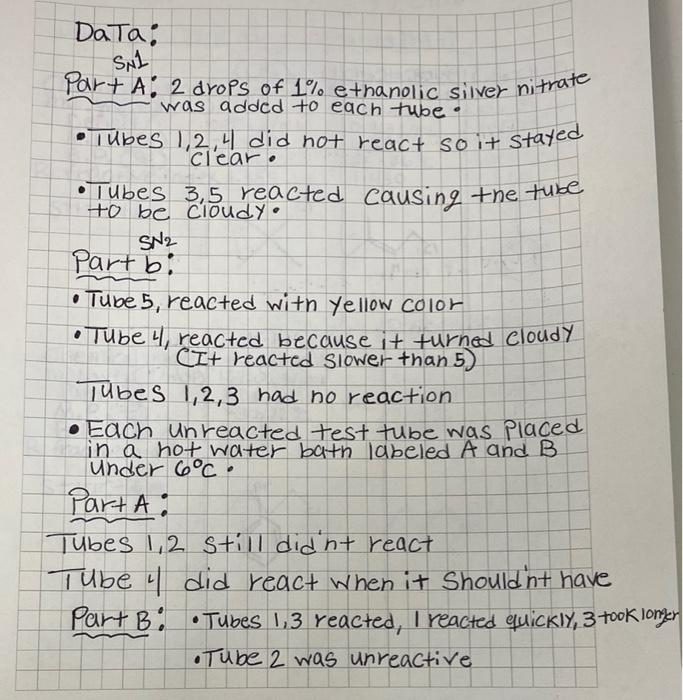 DaTa:
SN1
Part A: 2 drops of 1% ethanolic silver nitrate
was added to each tube.
• Tubes 1,2,4 did not react so it stayed
clear.
• Tubes 3,5 reacted causing the tube
to be cloudy.
SN2
Part b:
• Tube 5, reacted with yellow color
• Tube 4, reacted because it turned cloudy
(It reacted slower than 5)
Tubes 1,2,3 had no reaction
• Each unreacted test tube was placed
in a hot water bath labeled A and B
under 6°C.
Part A:
Tubes 1,2 still did'nt react
Tube 4 did react when it should'nt have
Part B: • Tubes 1,3 reacted, 1 reacted quickly, 3 took longer
• Tube 2 was unreactive